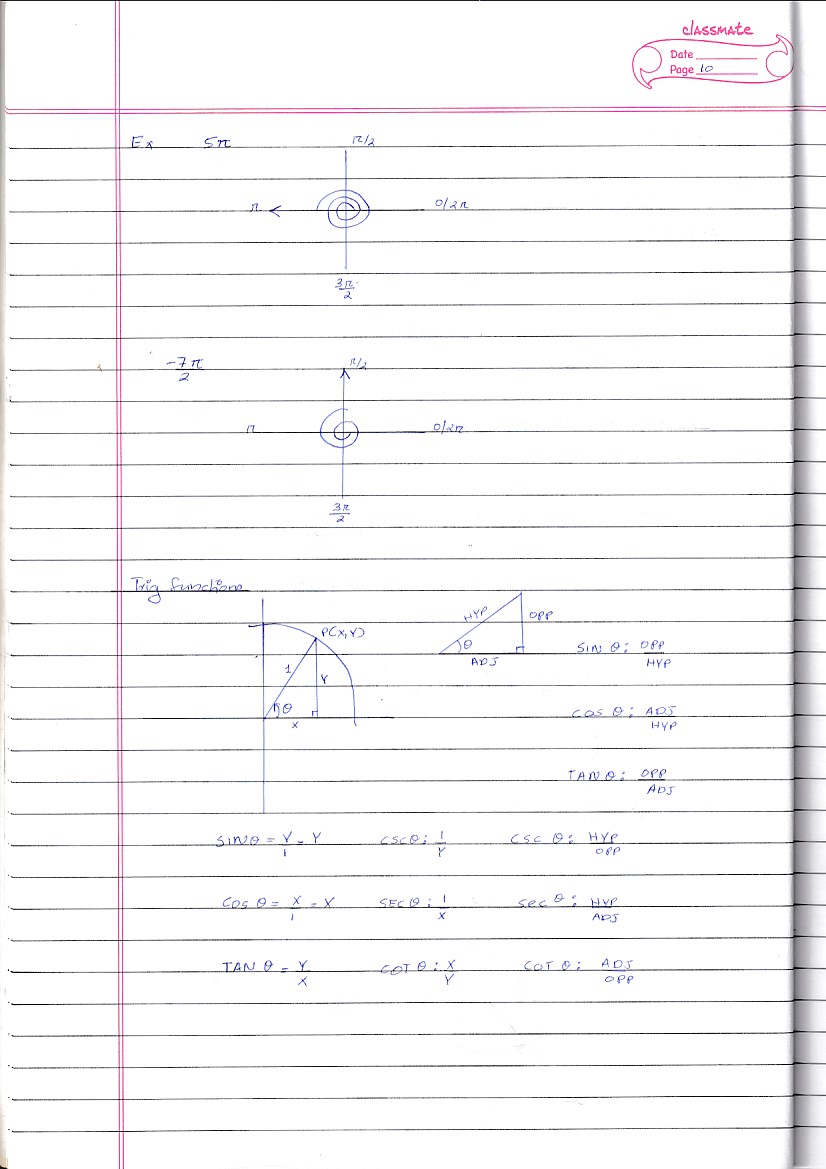 classmate
Date
Page 10
Ex 5π
π/2
π 0/2π
3π/2
-7π/2
π/2
π 0/2π
3π/2
Trig functions
P(X,Y)
1 Y
θ
X
HYP OPP
θ
ADJ
SIN θ : OPP/HYP
COS θ : ADJ/HYP
TAN θ : OPP/ADJ
SINθ = Y/1 = Y CSCθ : 1/Y CSC θ : HYP/OPP
COS θ = X/1 = X SEC θ : 1/X Sec θ : HYP/ADJ
TAN θ = Y/X COT θ : X/Y COT θ : ADJ/OPP